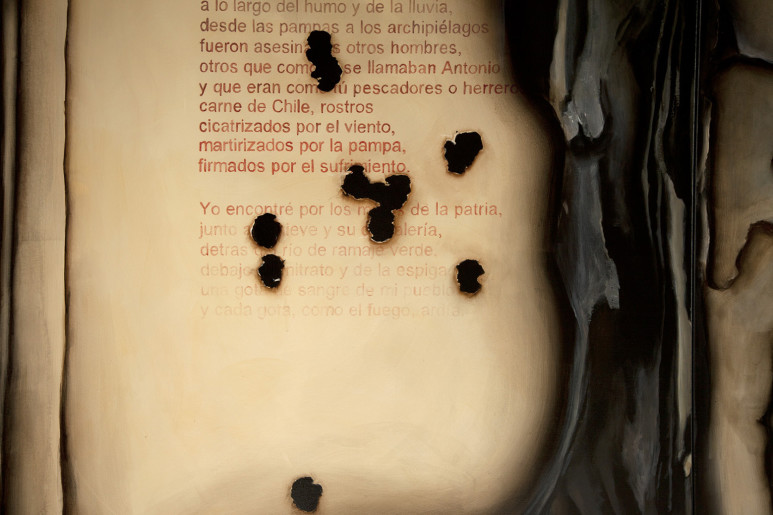 a lo largo del humo y de la lluvia,
desde las pampas a los archipiélagos
fueron asesin s otros hombres,
otros que com se llamaban Antonio
y que eran com tú pescadores o herrero
carne de Chile, rostros
cicatrizados por el viento,
martirizados por la pampa,
firmados por el sufrimiento.
Yo encontré por los de la patria,
junto a ieve y su alería,
detras río de ramaje verde.
debajo nitrato y de la espiga
una gota de sangre de mi pueblo
y cada gota, como el fuego,